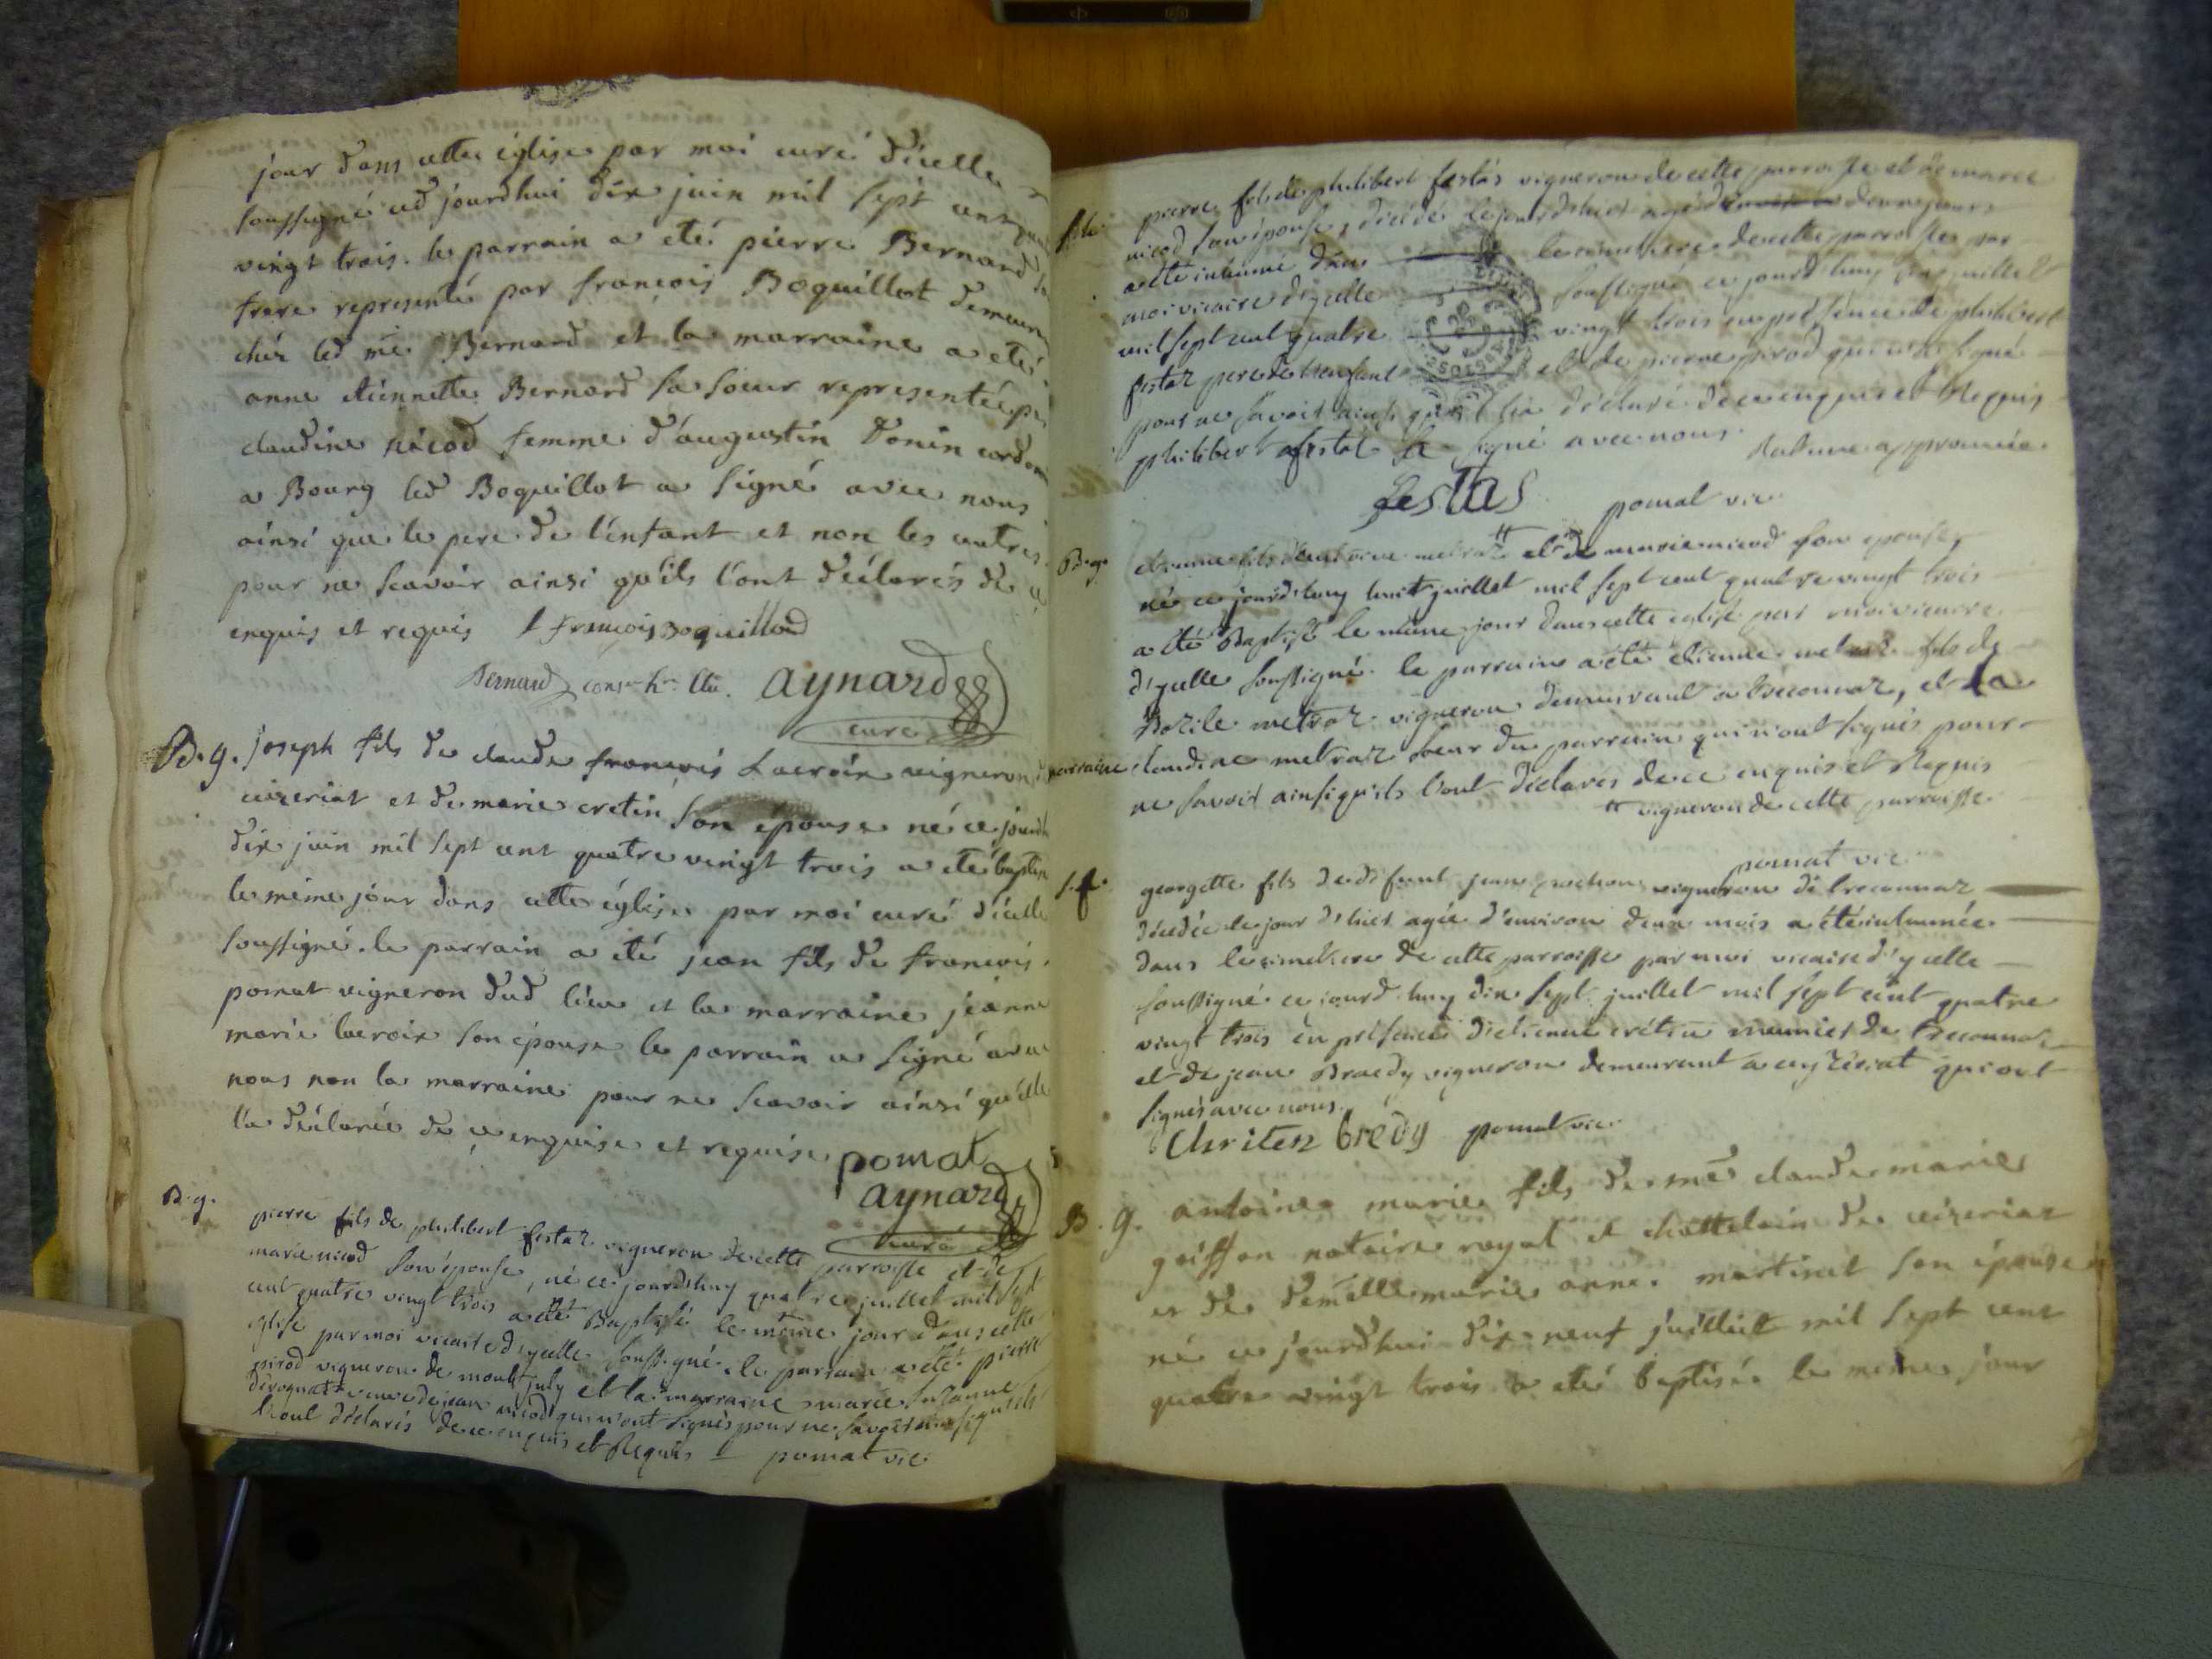 jour dans cette église par moi curé d'icelle
soussigné cd jourdhui dix juin mil sept cent quat
vingt trois. le parrain a eté pierre Bernard so
frere representé par françois Boquillot demeura
chéz led me Bernard et la marraine a eté
anne etiennette Bernard sa soeur representée pa
claudine nicod femme d'augustin tonin cordon
a Bourg led Boquillot a signé avec nous
ainsi que le pere de l'enfant et non les autres
pour ne scavoir ainsi qu'ils l'ont déclarés de c
enquis et requis françois Boquillod
Bernard aynard
curé
B. g. joseph fils de claude françois Lacroix vigneron d
ceizeriat et de marie cretin son épouse né ce jourdh
dix juin mil sept cent quatre vingt trois a eté baptisé
le même jour dans cette église par moi curé d'icelle
soussigné. le parrain a eté jean fils de francois
pomat vigneron dud lieu et la marraine jeanne
marie lacroix son épouse le parrain a signé avec
nous non la marraine pour ne scavoir ainsi qu'elle
l'a déclarée de ce enquise et requise pomat
aynard
curé
B. g.
pierre fils de philibert festaz vigneron de cette parroisse et de
marie nicod son épouse, né ce jourdhuy quatre juillet mil sept
cent quatre vingt trois a eté Baptisé le même jour dans cette
eglise par moi vicaire d'ycelle soussigné. le parrain a eté pierre
pirod vigneron de mont july et la marraine marie suzanne
veuve de jean nicod qui n'ont signés pour ne savoir ainsi qu'ils
l'ont déclarés de ce enquis et Requis pomat vic
pierre fils de philibert festas vigneron de cette parroisse et de marie
nicod son épouse, décédé le jourdhier agé de deux jours
a eté inhumé dans le cimetiere de cette parroisse par
moi vicaire d'ycelle soussigné ce jourd'huy juillet
mil sept cent quatre vingt trois en présence de philibert
festaz pere de l'enfant et de pierre pirod qui n'a signé
pour ne savoir ainsi qu'il l'a déclaré de ce enquis et Requis
philibert festaz a signé avec nous. Rature approuvée
festas pomat vic
B. g. etienne fils d'antoine metraz tt et de marie nicod son epouse,
né ce jourd'huy huit juillet mil sept cent quatre vingt trois
a eté Baptisé le même jour dans cette eglise par moi vicaire
d'ycelle soussigné. le parrain a eté etienne metraz fils de
Bazile metraz vigneron demeurant a treconnaz, et la
marraine claudine metraz soeur du parrain qui n'ont signés pour
ne savoir ainsi qu'ils l'ont déclarés de ce enquis et Requis
tt vigneron de cette parroisse
pomat vic
s. f. georgette fils de défunt jean pochon vigneron de treconnaz
décédée le jour d'hier agée d'environ deux mois a été inhumée
dans le cimetiere de cette parroisse par moi vicaire d'ycelle
soussigné ce jourd'huy dix sept juillet mil sept cent quatre
vingt trois en présence d'etienne crétin meunier de treconnaz
et de jean Braedy vigneron demeurant a ceyzériat qui ont
signés avec nous.
bredy pomat vic
B. g. antoine marie fils de me claude marie
goiffon notaire royal et chattelain de ceizeriat
et de demelle marie anne martinet son épouse
né ce jourdhui dix neuf juillet mil sept cent
quatre vingt trois a eté baptisé le même jour